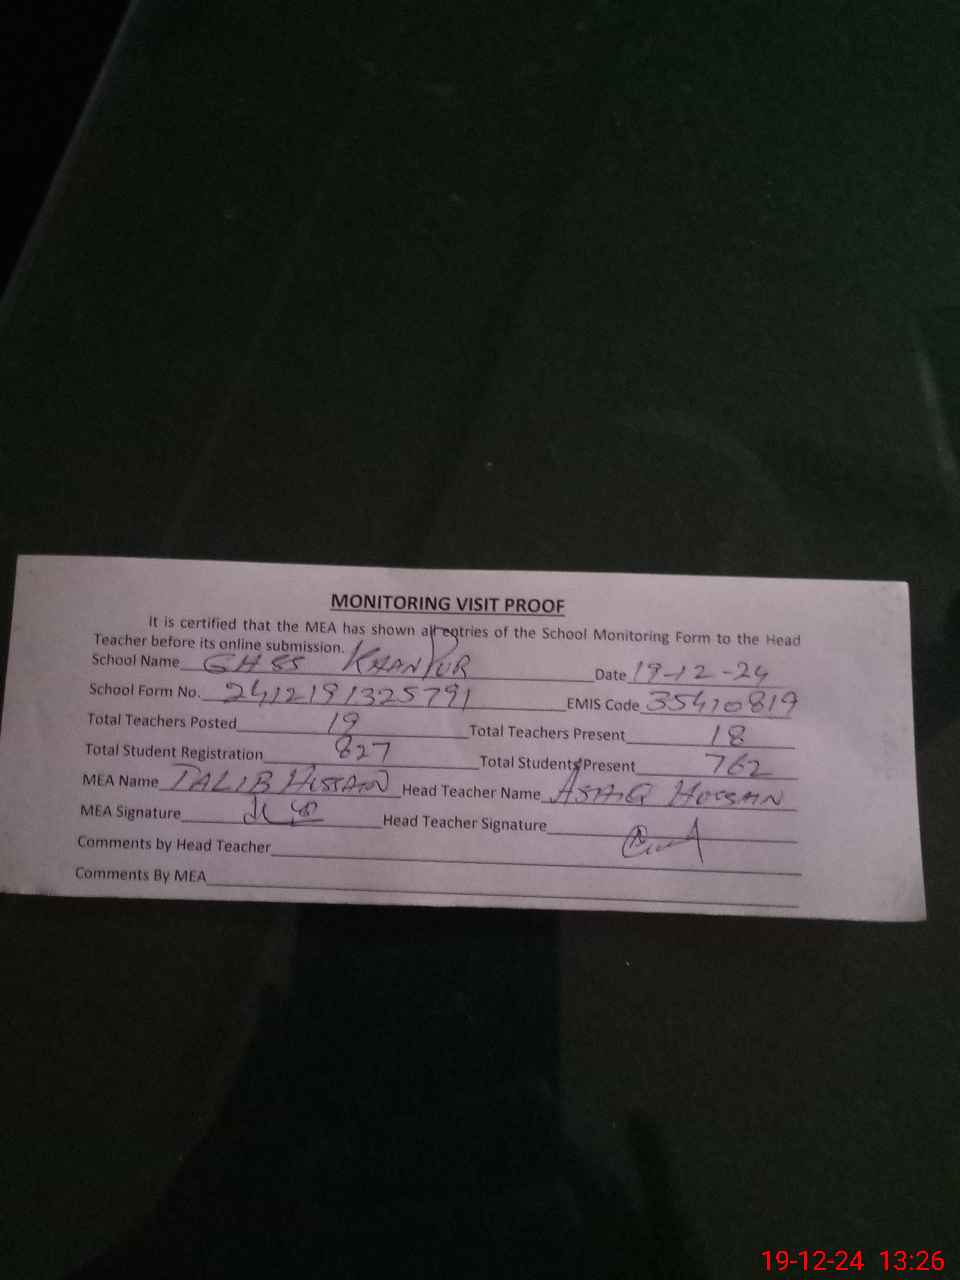 MONITORING VISIT PROOF
It is certified that the MEA has shown all entries of the School Monitoring Form to the Head
Teacher before its online submission.
School Name GHSS KHANPUR Date 19-12-24
School Form No. 2412191325791 EMIS Code 35410819
Total Teachers Posted 19 Total Teachers Present 18
Total Student Registration 827 Total Students Present 762
MEA Name TALIB HUSSAIN Head Teacher Name ASHIQ HUSSAN
MEA Signature Head Teacher Signature
Comments by Head Teacher
Comments By MEA
19-12-24 13:26